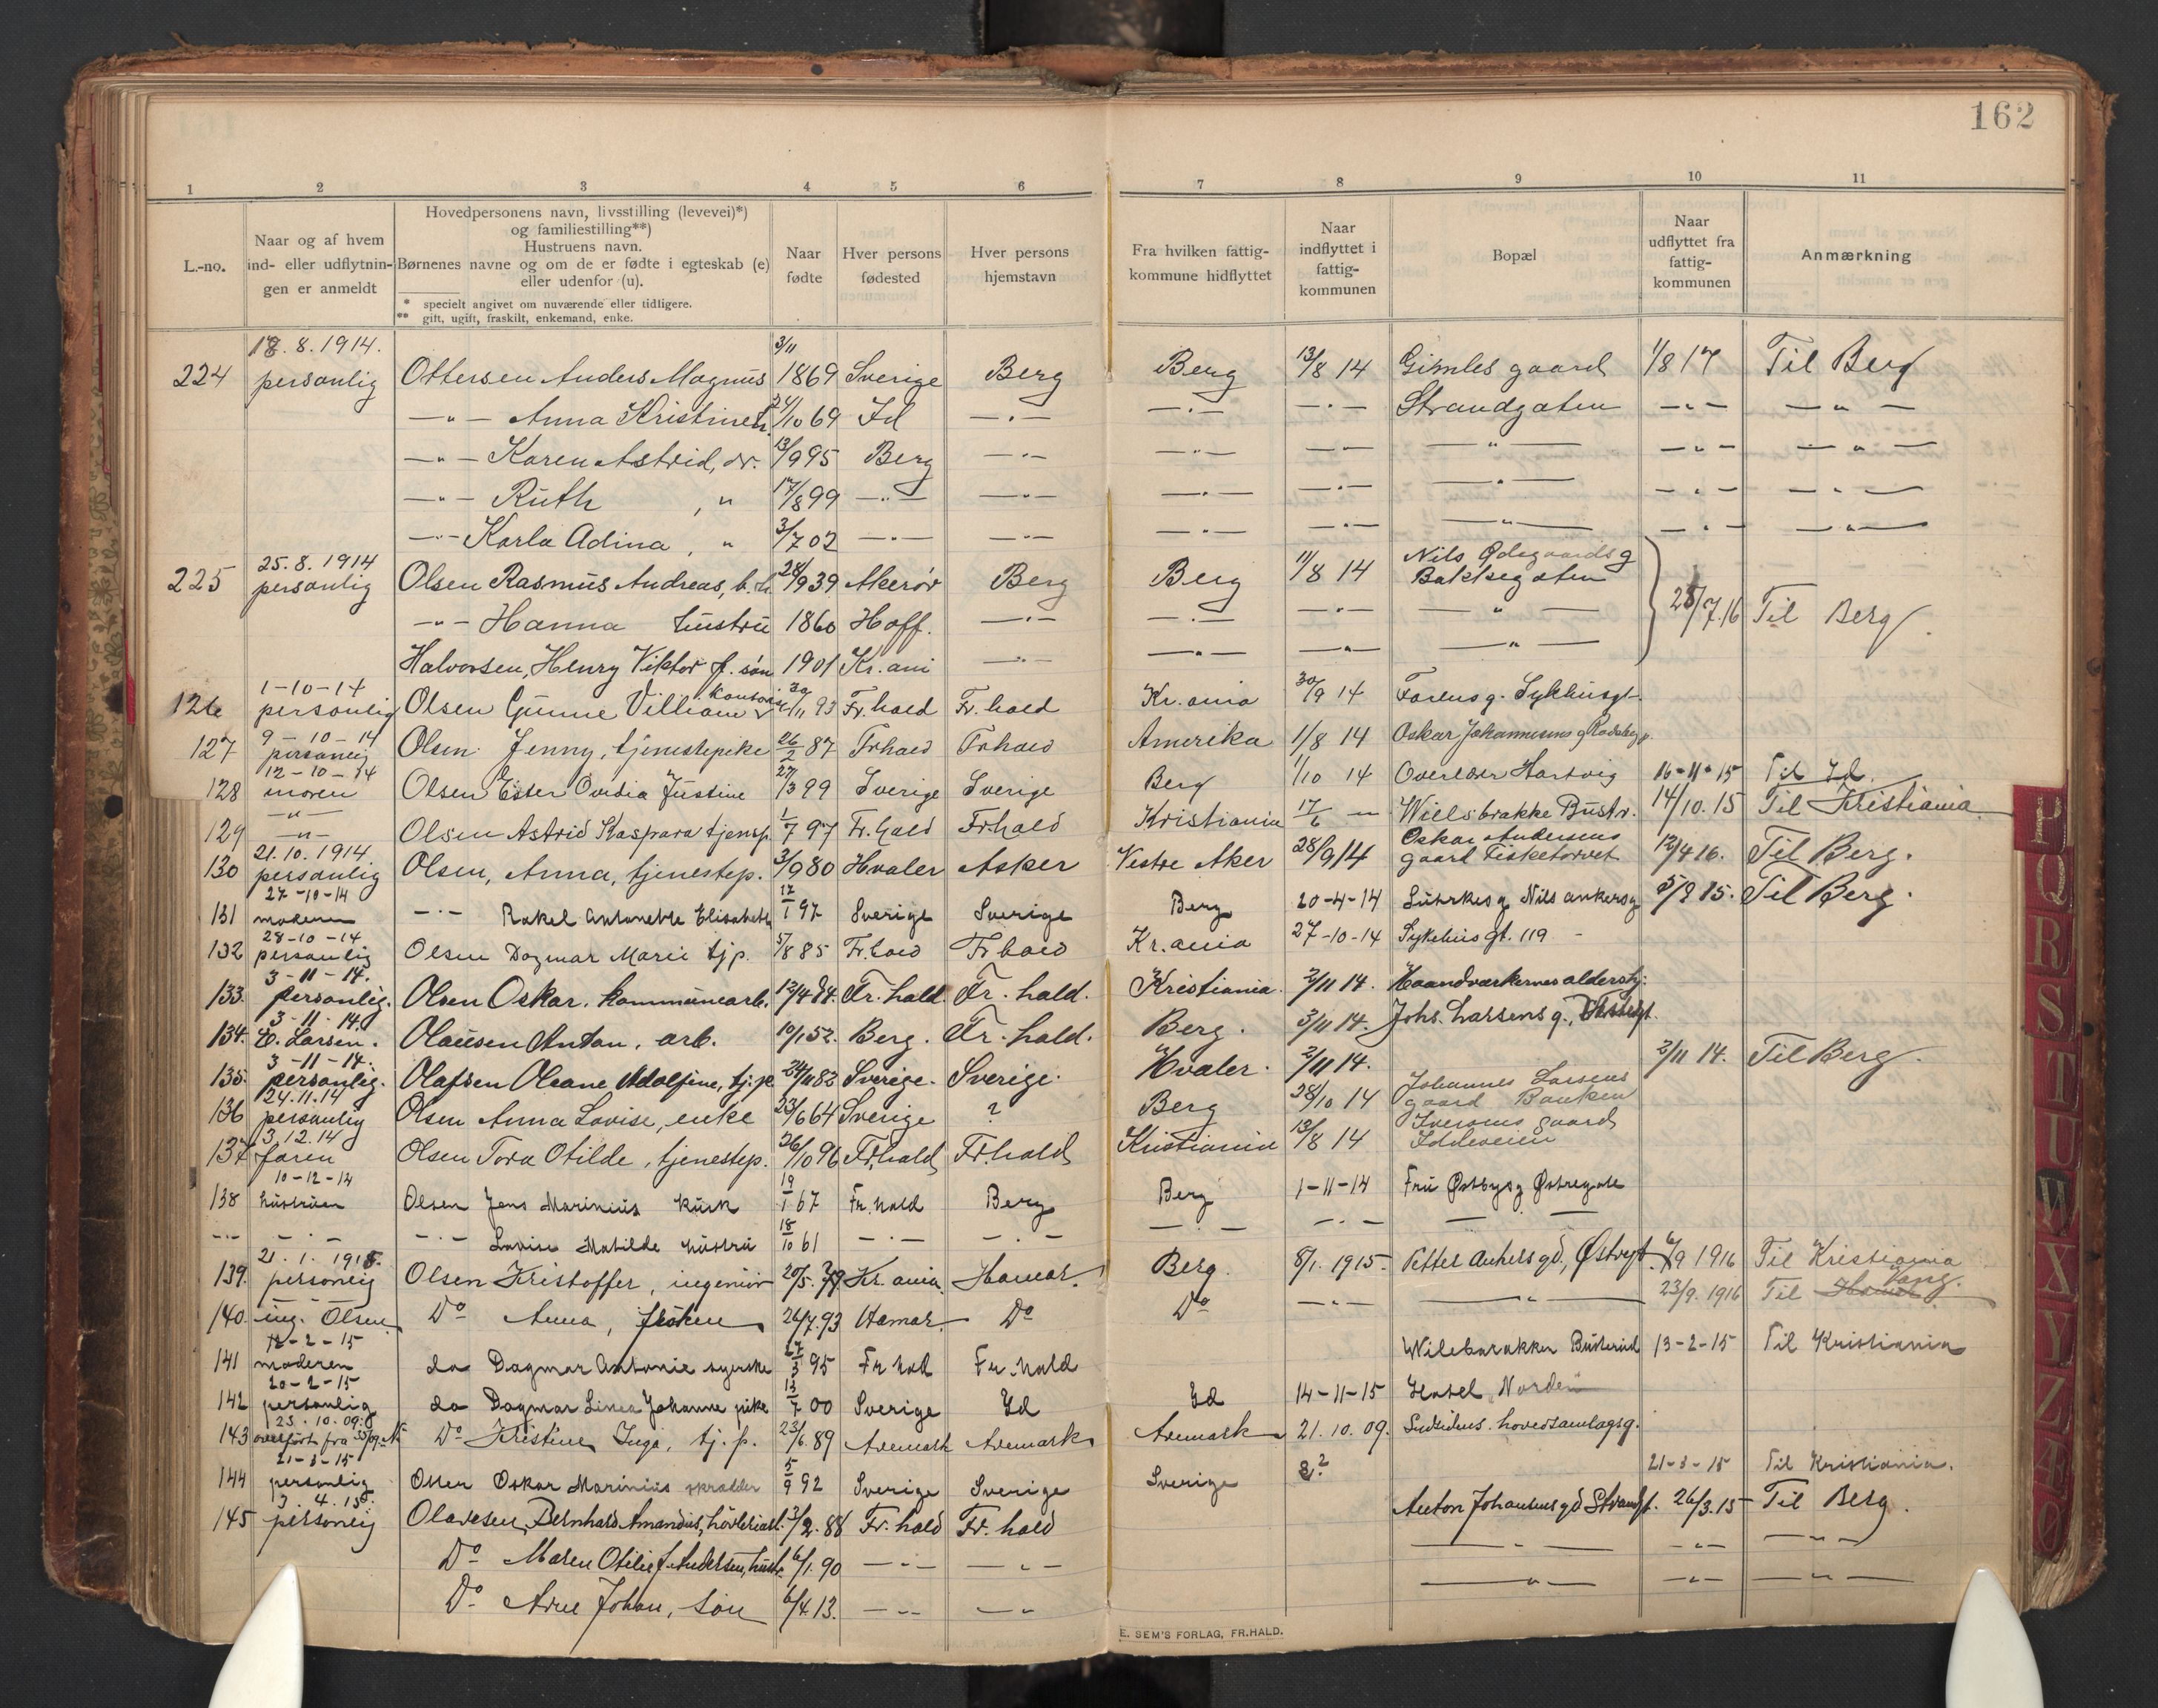 162
1 2 3 4 5 6 7 8 9 10 11
L.-no.
Naar og af hvem
ind- eller udflytnin-
gen er anmeldt
Hovedpersonens navn, livsstilling (levevei)*)
og familiestilling**)
Hustruens navn.
Børnenes navne og om de er fødte i egteskab (e)
eller udenfor (u).
* specielt angivet om nuværende eller tidligere.
** gift, ugift, fraskilt, enkemand, enke.
Naar
fødte
Hver persons
fødested
Hver persons
hjemstavn
Fra hvilken fattig-
kommune hidflyttet
Naar
indflyttet i
fattig-
kommunen
Bopæl
Naar
udflyttet fra
fattig-
kommunen
Anmærkning
18.8.1914. 3/11
224 personlig Ottersen Anders Magnus 1869 Sverige Berg Berg 13/8 14 Gimles gaard 1/8 17 Til Berg
—"— Anna Kristine h. 24/10 69 Id —"— —"— —"— Strandgaten —"— —"—
—"— Karen Astrid, dr. 13/9 95 Berg —"— —"— —"— —"— —"— —"—
—"— Ruth , " 17/8 99 —"— —"— —"— —"— —"— —"— —"—
—"— Karla Adina , " 3/7 02 —"— —"— —"— —"— —"— —"— —"—
25.8.1914 Nils Ødegaards g
225 personlig Olsen Rasmus Andreas, 28/9 39 Akerør Berg Berg 11/8 14 Bakkegaten
—"— Hanna hustru 1860 Hoff. —"— —"— —"— —"— 28/7.16 Til Berg
Halvorsen, Henry Viktor f. søn 1901 Kr.ani —"— —"— —"— —"—
1-10-14
126 personlig Olsen Gunne Villiam 30/11 93 Fr.hald Fr.hald Kr.ania 30/9 14 Farens g. Sykhusgt.
9-10-14
127 personlig Olsen Jenny, tjenestepike 26/2 87 Frhald Frhald Amerika 1/8 14 Oskar Johannesens g
12-10-14
128 moren Olsen Ester Ovidia Justine 27/3 99 Sverige Sverige Berg 1/10 14 Overlær Hartvig 16-11-15 Til Id.
—"—
129 —"— Olsen Astrid Kaspara tjensp. 1/7 97 Fr.hald Frhald Kristiania 17/6 — Wielsbrakke Bustr. 14/10.15 Til Kristiania
21.10.1914 Oskar Andersens
130 personlig Olsen, Anna, tjenestep. 3/9 80 Hvaler Asker Vestre Aker 28/9 14 gaard Fisketorvet 12/4 16. Til Berg.
27-10-14
131 moderen —"— Rakel Antonette Elisabeth 17/1 97 Sverige Sverige Berg 20-4-14 Luhrkes g Nils ankersg 5/9 15. Til Berg.
28-10-14
132 personlig Olsen Dagmar Marie tjp. 5/8 85 Fr.hald Fr hald Kr.ania 27-10-14 Sykehusgt. 119 -
3-11-14.
133. personlig. Olsen Oskar. kommunearb. 12/4 84. Fr.hald. Fr.hald. Kristiania. 2/11 14. Haandværkernes aldershj.
3-11-14.
134. E. Larsen. Olausen Antan. arb. 10/1 52. Berg. Fr.hald. Berg. 3/11 14. Johs. Larsens g.,
3-11-14.
135. personlig. Olafsen Oleane Adolfine, tj.p. 24/11 82 Sverige. Sverige. Hvaler. 2/11 14. 2/11 14. Til Berg.
24.11.14 Johannes Larsens
136 personlig Olsen Anna Lovise, enke 23/6 64 Sverige ? Berg 28/10 14 gaard Banken
3.12.14 Iversens gaard
137 faren Olsen Tora Otilde, tjenestep. 26/10 96 Fr.hald Fr.hald Kristiania 13/8 14 Iddeveien
10-12-14
138 hustruen Olsen Jens Marinius kusk 19/1 67 Fr.hald Berg Berg 1-11-14 Fru Østbys g Østregate
—"— —"— —"— Lovise Matilde hustru 18/10 61 —"— —"— —"— —"— —"—
21.1.1915.
139. personlig Olsen Kristoffer, ingeniør 20/5.79 Kr.ania. Hamar. Berg. 8/1.1915. Petter Ankers gd., Østregt. 6/9 1916 Til Kristiania
140. ing. Olsen Do Anna, frøken 26/7.93 Hamar. Do Do —"— —"— 23/9.1916 Til Hamar Vang.
12-2-15
141 moderen do Dagmar Antonie syerske 27/3 95 Fr hald Fr.hald Wilsbarakken Buterud 13-2-15 Til Kristiania
20-2-15
142 personlig do Dagmar Linea Johanne pike 13/7 00 Sverige Id Id 14-11-15 Hotel Norden
23.10.09.
143 overført fra Do Kristine Inga, tj.p. 23/6.89 Aremark Aremark Aremark 21.10.09. hovedsamlagsg.
21-3-15
144 personlig Olsen Oskar Marinius skræder 5/9 92 Sverige Sverige Sverige ? 21-3-15 Til Kristiania.
3.4.15.
145 personlig Olavesen, Bernhard Amandus, høvleriarb. 3/2.88 Fr.hald Fr.hald Anton Johansens gd Strandgt. 26/3.15 Til Berg.
Do Maren Otilie f. Andersen, hustr. 6/1.90 —"— —"— —"— —"— —"—
Do Arne Johan, søn 6/4 13. —"— —"— —"— —"— —"—
E. SEM'S FORLAG, FR.HALD.
P
Q
R
S
T
U
W
X
Y
Z
Æ
Ø